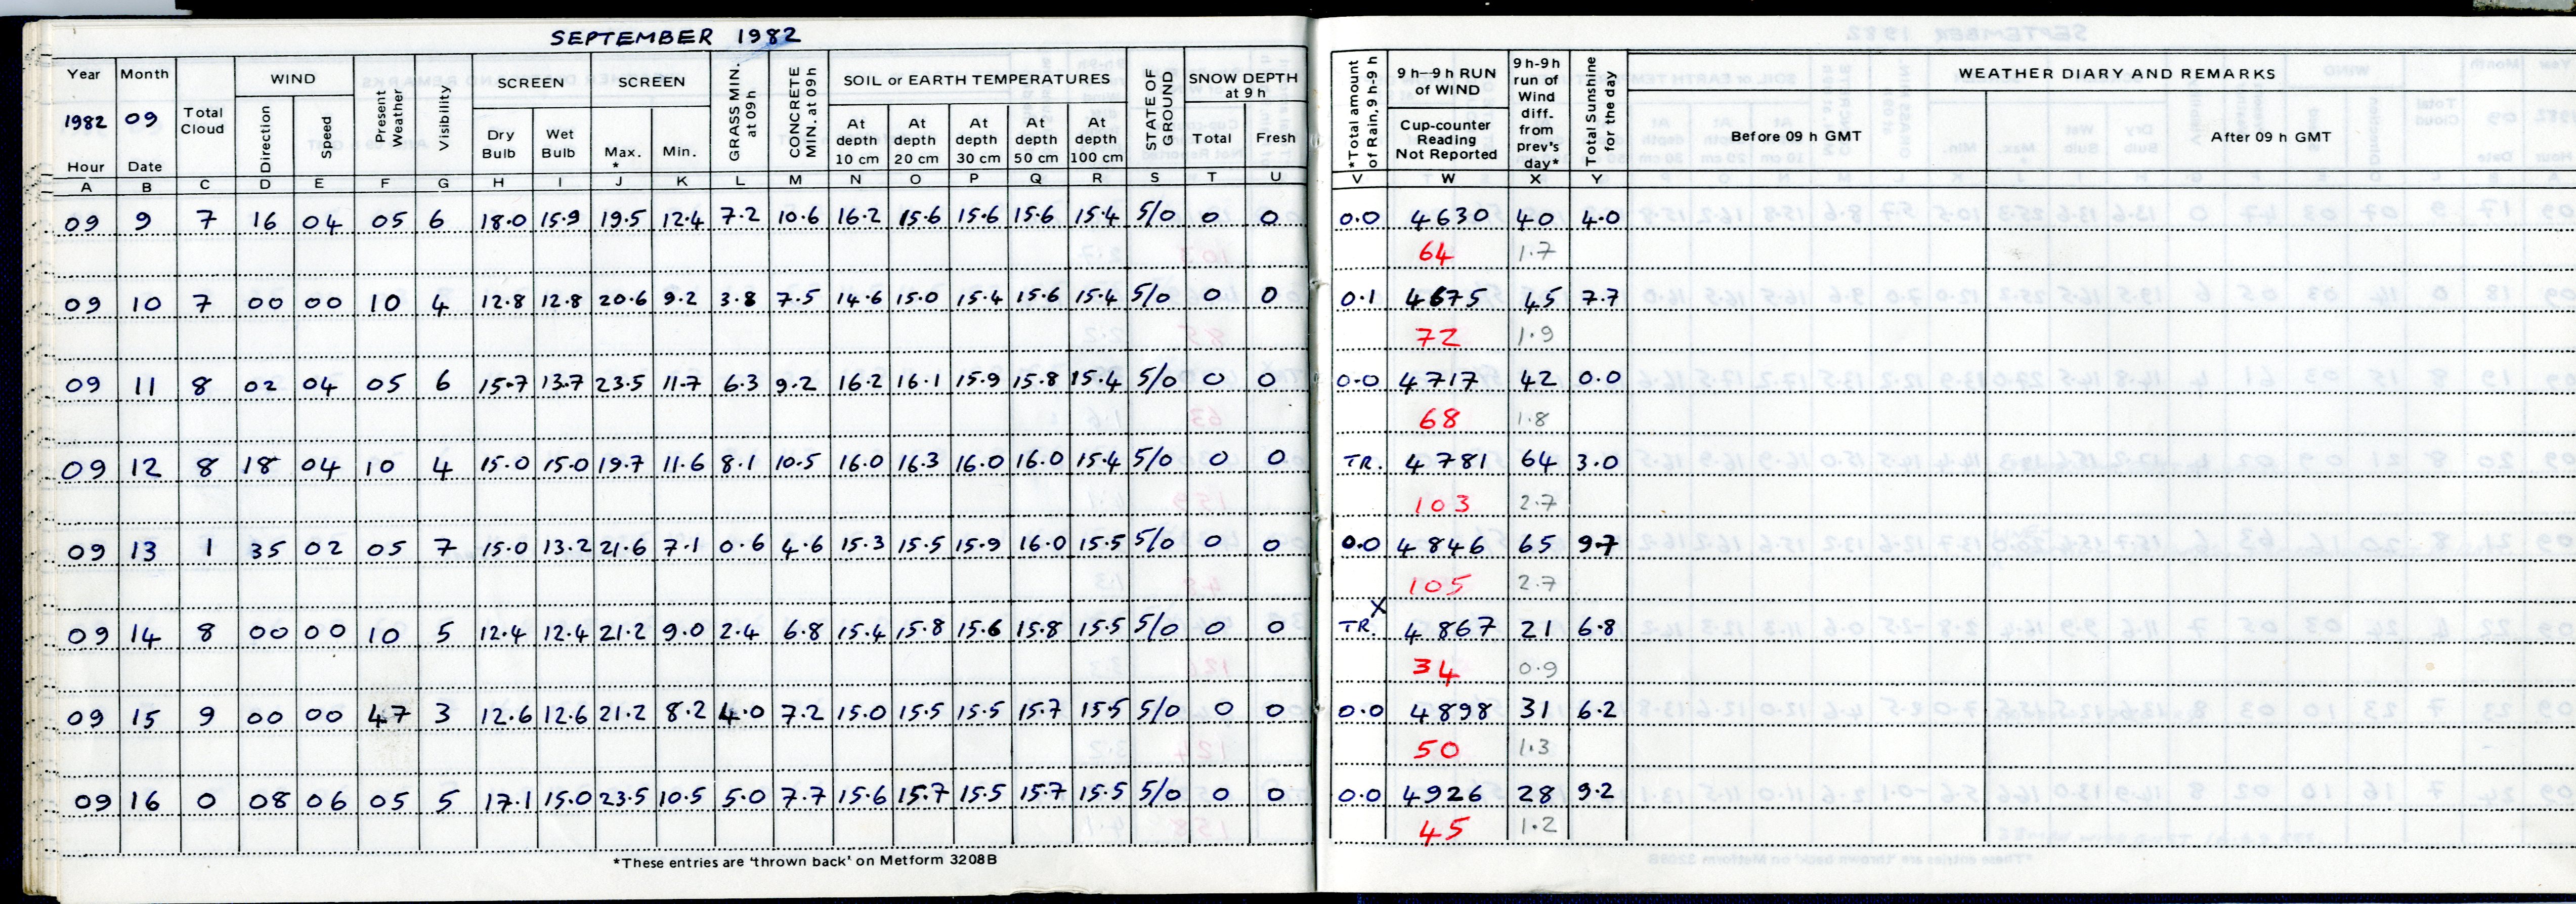 SEPTEMBER 1982
Year Month Total Cloud WIND Present Weather Visibility SCREEN SCREEN GRASS MIN. at 09h CONCRETE MIN. at 09h SOIL or EARTH TEMPERATURES STATE OF GROUND SNOW DEPTH at 9 h *Total amount of Rain, 9 h-9 h 9 h—9 h RUN of WIND 9 h-9 h run of Wind diff. from prev's day* Total Sunshine for the day WEATHER DIARY AND REMARKS
1982 09 Direction Speed Dry Bulb Wet Bulb Max. * Min. At depth 10 cm At depth 20 cm At depth 30 cm At depth 50 cm At depth 100 cm Total Fresh Cup-counter Reading Not Reported Before 09 h GMT After 09 h GMT
Hour Date
A B C D E F G H I J K L M N O P Q R S T U V W X Y
09 9 7 16 04 05 6 18.0 15.9 19.5 12.4 7.2 10.6 16.2 15.6 15.6 15.6 15.4 5/0 0 0 0.0 4630 40 4.0
64 1.7
09 10 7 00 00 10 4 12.8 12.8 20.6 9.2 3.8 7.5 14.6 15.0 15.4 15.6 15.4 5/0 0 0 0.1 4675 45 7.7
72 1.9
09 11 8 02 04 05 6 15.7 13.7 23.5 11.7 6.3 9.2 16.2 16.1 15.9 15.8 15.4 5/0 0 0 0.0 4717 42 0.0
68 1.8
09 12 8 18 04 10 4 15.0 15.0 19.7 11.6 8.1 10.5 16.0 16.3 16.0 16.0 15.4 5/0 0 0 TR. 4781 64 3.0
103 2.7
09 13 1 35 02 05 7 15.0 13.2 21.6 7.1 0.6 4.6 15.3 15.5 15.9 16.0 15.5 5/0 0 0 0.0 4846 65 9.7
105 2.7
X
09 14 8 00 00 10 5 12.4 12.4 21.2 9.0 2.4 6.8 15.4 15.8 15.6 15.8 15.5 5/0 0 0 TR. 4867 21 6.8
34 0.9
09 15 9 00 00 47 3 12.6 12.6 21.2 8.2 4.0 7.2 15.0 15.5 15.5 15.7 15.5 5/0 0 0 0.0 4898 31 6.2
50 1.3
09 16 0 08 06 05 5 17.1 15.0 23.5 10.5 5.0 7.7 15.6 15.7 15.5 15.7 15.5 5/0 0 0 0.0 4926 28 9.2
45 1.2
*These entries are 'thrown back' on Metform 3208B